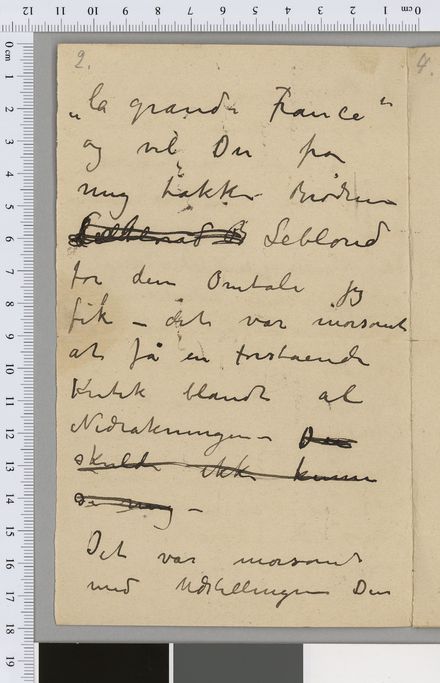 2.
4.
„la grande France"
og vil Du fra
mig takke Brødrene
Leblond
for den Omtale jeg
fik – det var morsomt
at få en forstående
Kritik blandt al
Nedrakningen – Du
skulde ikke kunne
se mig –
Det var morsomt
med Udstillingen Du
12 11 10 9 8 7 6 5 4 3 2 1 0 cm
0 cm
1
2
3
4
5
6
7
8
9
10
11
12
13
14
15
16
17
18
19